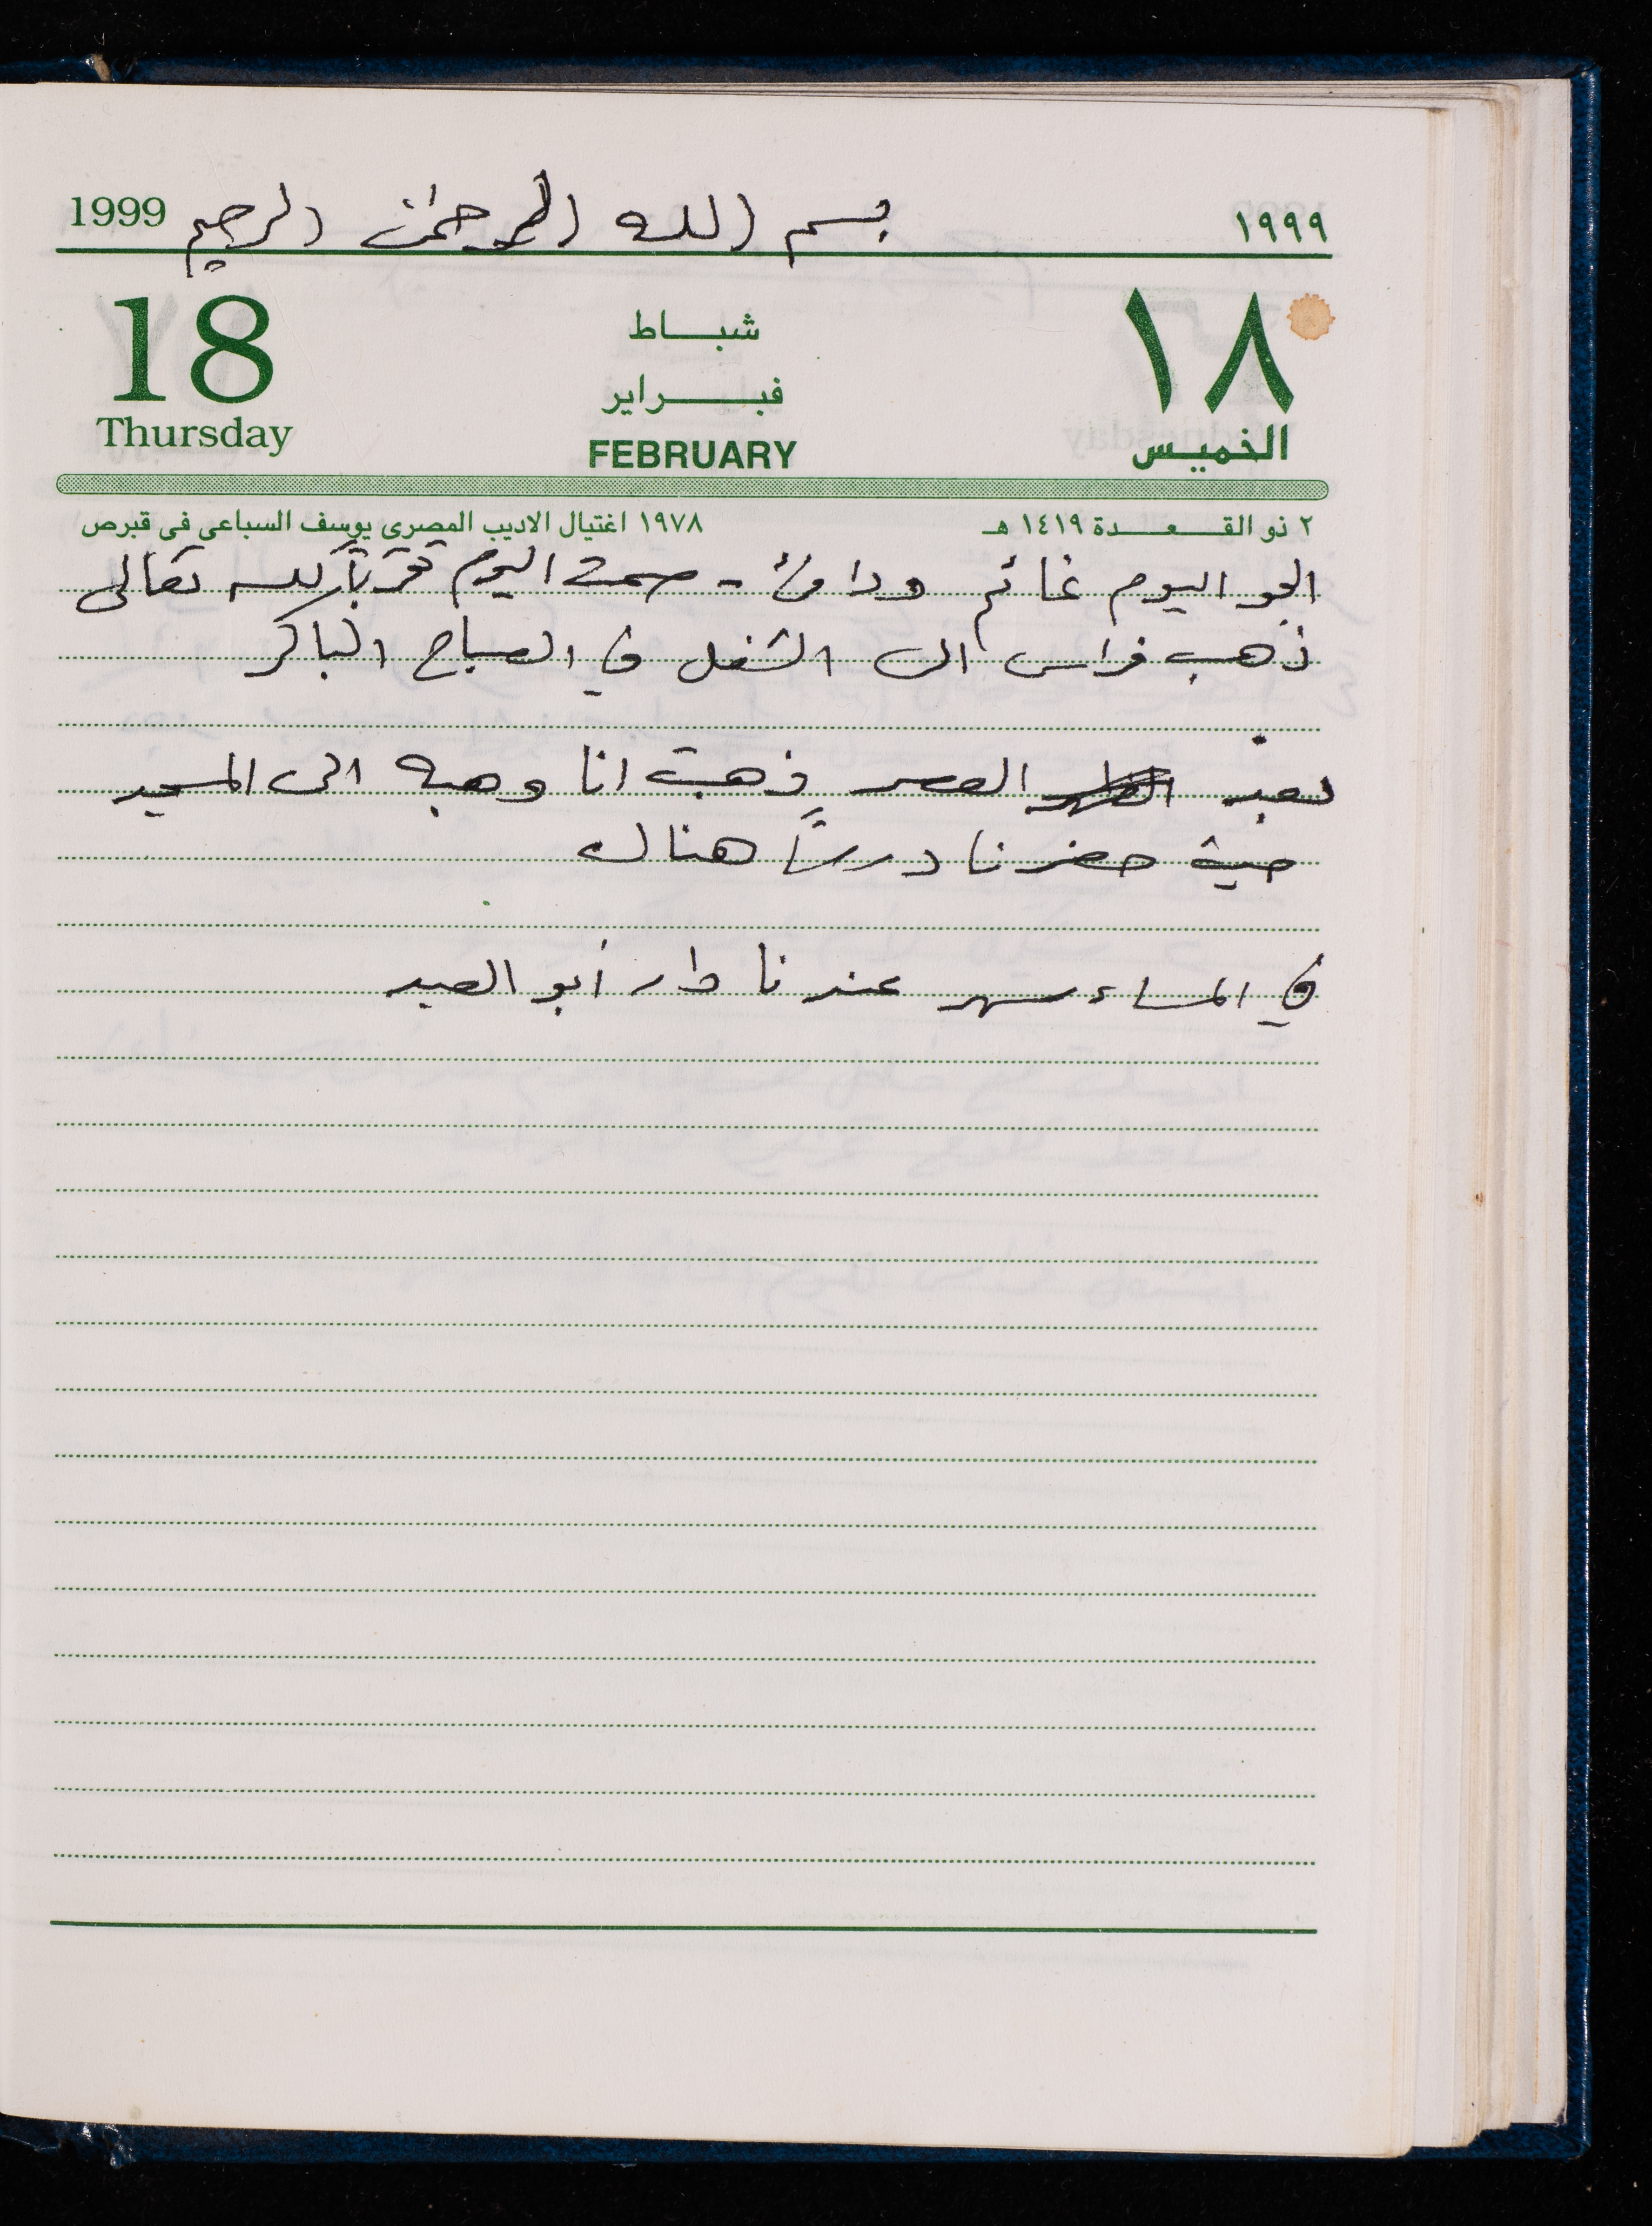 1999 بسم الله الرحمن الرحيم ١٩٩٩
18 شباط ١٨
فبراير
Thursday FEBRUARY الخميس
٢ ذو القعدة ١٤١٩ هـ ١٩٧٨ اغتيال الاديب المصرى يوسف السباعى فى قبرص
الجو اليوم غائم ودافئ - صمت اليوم تقرباً لله تعالى
ذهب فراس الى الشغل في الصباح الباكر
بعد الظهر العصر ذهبت انا وهبه الى المسجد
حيث حضرنا درساً هناك
في المساء سهر عندنا دار أبو العبد